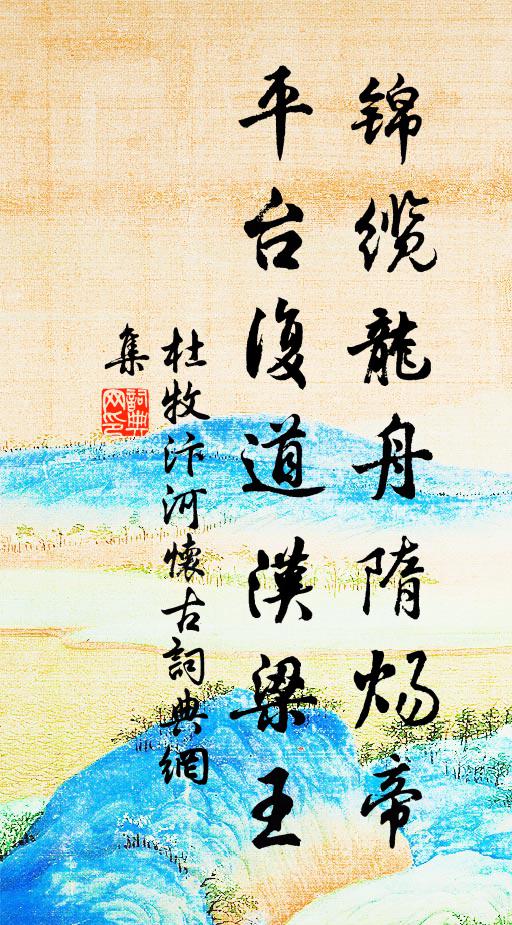 锦缆龍舟隋炀帝
平台復道漢梁王
杜牧汴河懷古詞典網
集
詞典網印